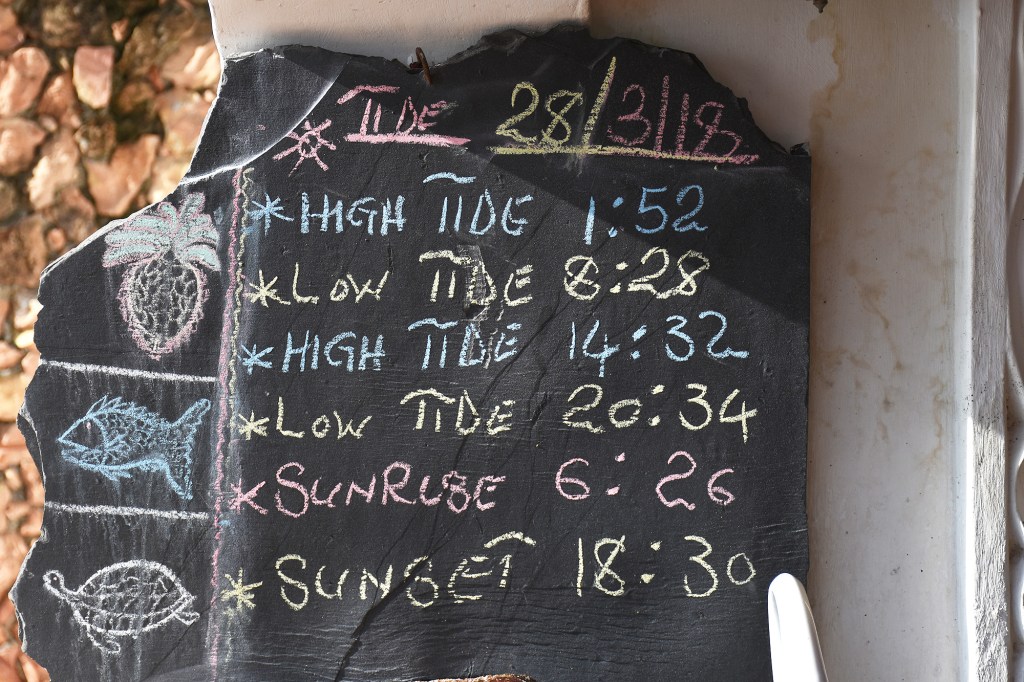 TIDE 28/3/18
*HIGH TIDE 1:52
*LOW TIDE 8:28
*HIGH TIDE 14:32
*LOW TIDE 20:34
*SUNRISE 6:26
*SUNSET 18:30